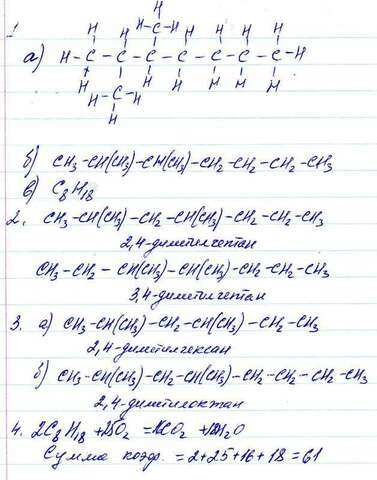 1
H
H H H-C-H H H H
а) H-C-C-C-C-C-C-C-H
H H H H H H
H-C-H
H
б) CH3-CH(CH3)-CH(CH3)-CH2-CH2-CH2-CH3
в) C8H18
2. CH3-CH(CH3)-CH2-CH(CH3)-CH2-CH2-CH3
2,4-диметилгептан
CH3-CH2-CH(CH3)-CH(CH3)-CH2-CH2-CH3
3,4-диметилгептан
3. а) CH3-CH(CH3)-CH2-CH(CH3)-CH2-CH3
2,4-диметилгексан
б) CH3-CH(CH3)-CH2-CH(CH3)-CH2-CH2-CH2-CH3
2,4-диметилоктан
4. 2C8H18 +25O2 =16CO2 +18H2O
Сумма коэф. =2+25+16+18=61